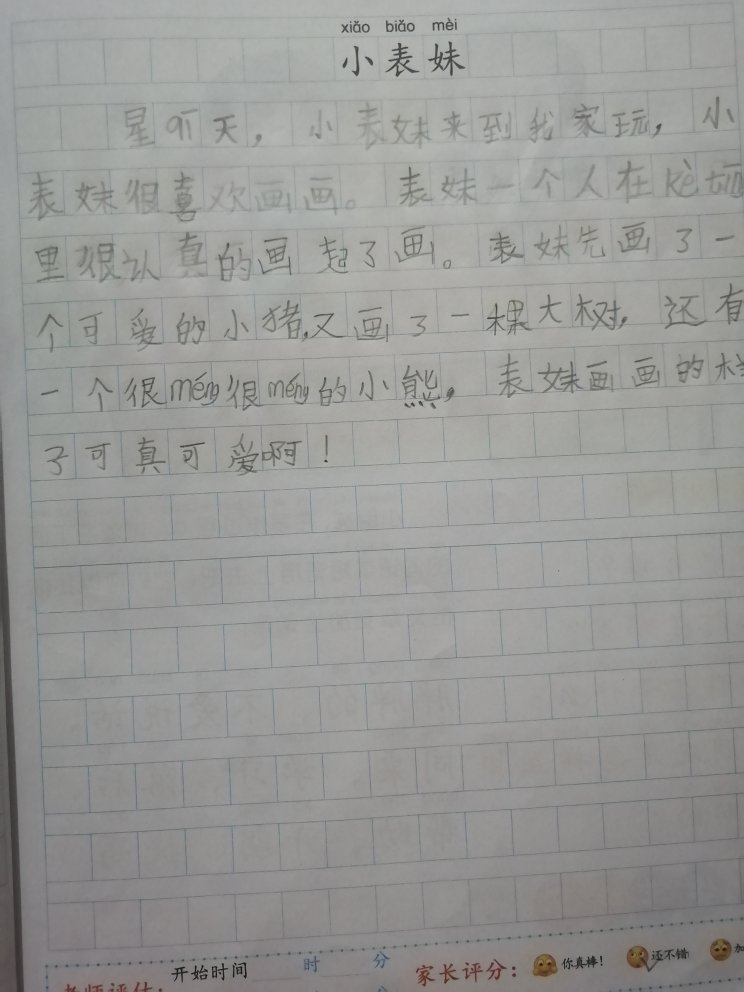 xiǎo biǎo mèi
小表妹
星期天，小表妹来到我家玩，小
表妹很喜欢画画。表妹一个人在kè
里很认真的画起了画。表妹先画了一
个可爱的小猪，又画了一棵大树，还有
一个很méng很méng的小熊，表妹画画的样
子可真可爱啊！
开始时间 时 分
家长评分： 你真棒！ 还不错